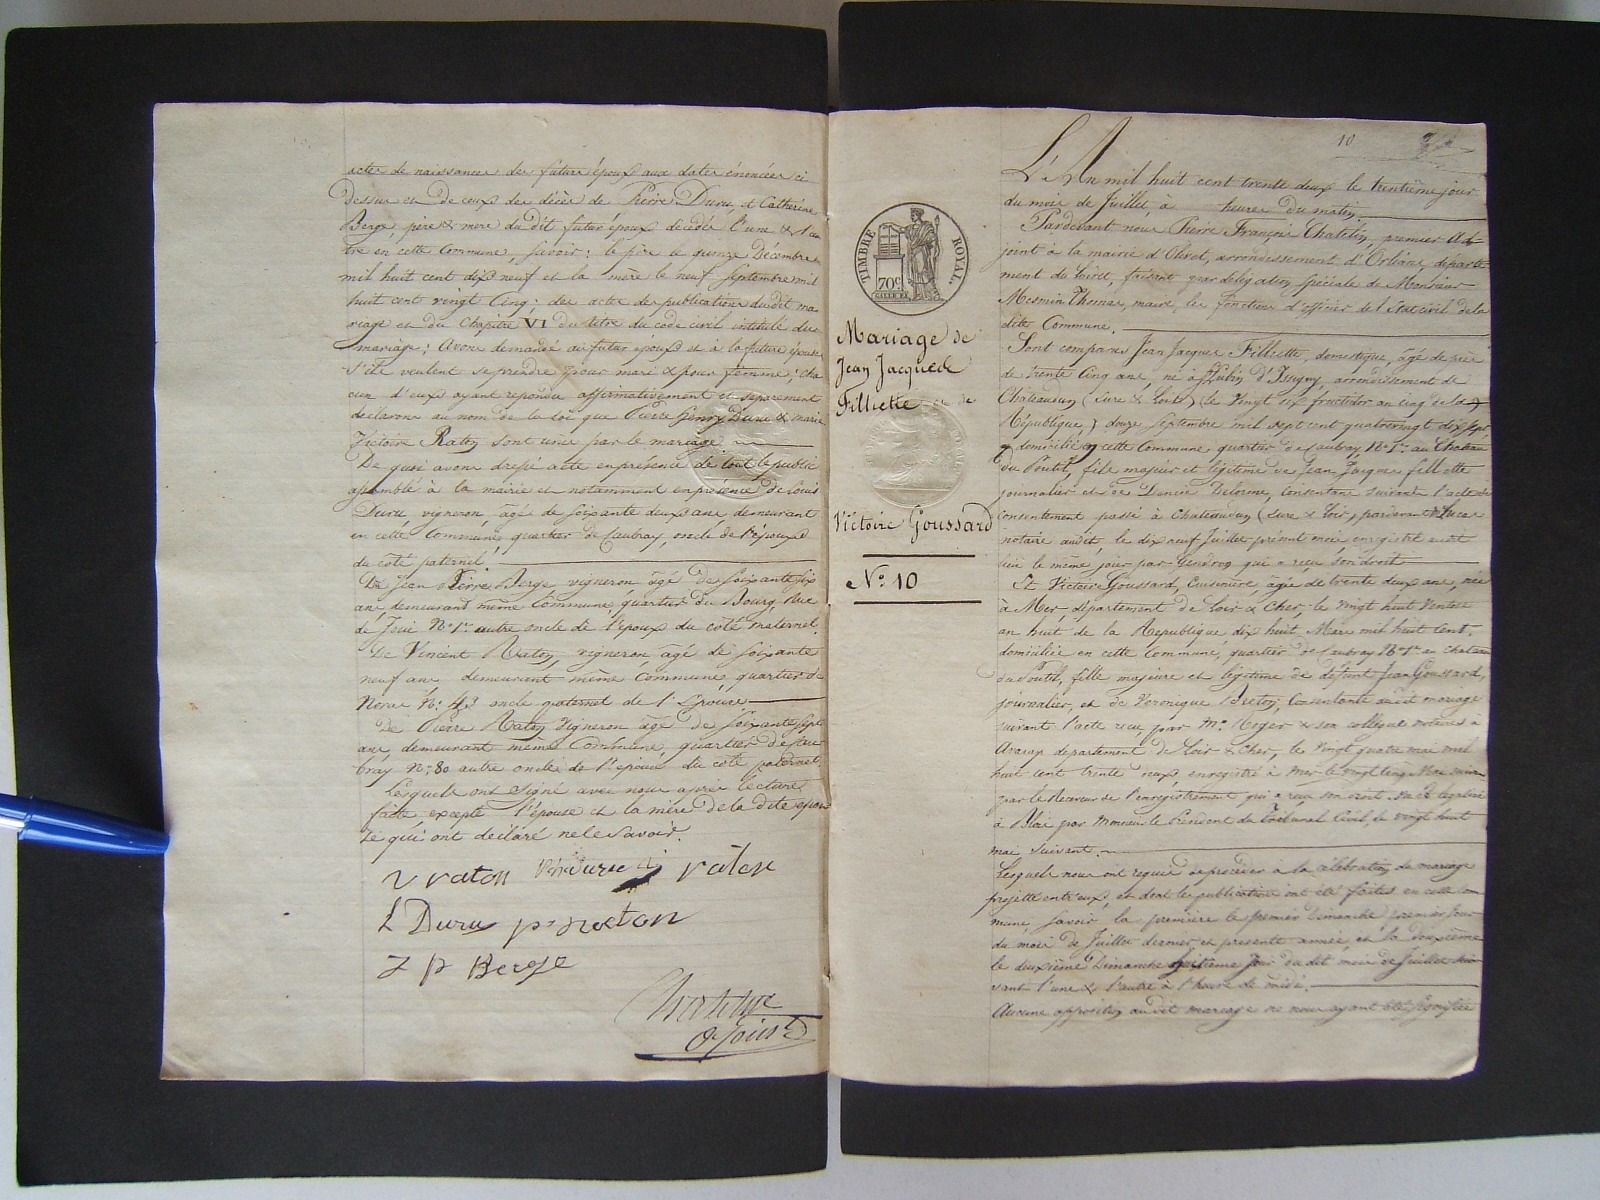 actes de naissances des futurs époux aux dates énoncées ci
Dessus et de ceux des décès de Pierre Duru et Catherine
Berge, père & mère du dit futur époux décédés l'une & l'au
tre en cette Commune, savoir : le père le quinze Décembre
mil huit cent dix neuf et la mère le neuf Septembre mil
huit cent vingt Cinq ; des actes de publications dudit ma
riage et du Chapitre VI du titre du code civil intitulé du
mariage ; Avons demandé au futur époux et à la future épouse
s'ils veulent se prendre pour mari & pour femme ; cha
cun d'eux ayant répondu affirmativement et séparément
déclarons au nom de la loi que Pierre Henry Duru & marie
Victoire Raton sont unis par le mariage
De quoi avons dressé acte en présence de tout le public
assemblé à la mairie et notamment en présence de Louis
Duru vigneron, âgé de soixante deux ans demeurant
en cette Commune, quartier de Caubray, oncle de l'époux
du côté paternel.
De Jean Pierre Berge, vigneron, âgé de Soixante Six
ans demeurant même Commune, quartier du Bourg, Rue
de N° 1er autre oncle de l'époux du côté maternel.
De Vincent Raton, vigneron, âgé de soixante
neuf ans demeurant même Commune, quartier de
N° 43 oncle paternel de l'Epouse
De Pierre Raton Vigneron âgé de Soixante Sept
ans, demeurant même Commune, quartier de Cau
bray N° 80 autre oncle de l'épouse du côté paternel.
Lesquels ont signé avec nous après lecture
faite, excepté l'épouse et la mère de la dite épou
se qui ont déclaré ne le savoir.
V raton Duru raton
L Duru pre raton
J P Berge
adjoint
10
L'An mil huit cent trente deux le trentième jour
du mois de Juillet, à heures du matin,
Pardevant nous Pierre François Chatelin, premier Ad-
joint à la mairie d'Olivet, arrondissement d'Orléans, départe-
ment du Loiret, faisant par délégation spéciale de Monsieur
Mesmin Thomas, maire, les fonctions d'officier de l'Etat civil de la
dite Commune.
TIMBRE ROYAL
70c
Mariage de
Jean Jacques
Filliette et de
Victoire Goussard
N° 10
Sont comparus Jean Jacques Filliette, domestique, âgé de
de trente Cinq ans, né à St Lubin d'Isigny, arrondissement de
Châteaudun (Eure & Loir) le Vingt six fructidor an Cinq de la
République, douze Septembre mil sept cent quatrevingt dix sept,
domicilié en cette Commune quartier de Caubray N° 1er au Château
du Poutil, fils majeur et légitime de Jean Jacques fillette
journalier et de Denise Delorme, Consentans suivant l'acte de
Consentement passé à Chateaudun (Eure & Loir, pardevant Lucas
notaire audit, le dix neuf Juillet présent mois, enregistré audit
lieu le même jour par Gendron qui a reçu son droit
Et Victoire Goussard, Cuisinière, âgée de trente deux ans, née
à Mer, département de Loir & Cher le Vingt huit Ventose
an huit de la République dix huit Mars mil huit Cent,
domiciliée en cette Commune, quartier de Caubray N° 1er au château
du Poutil, fille majeure et légitime de défunt Jean Goussard,
journalier, et de Véronique Breton, Consentante audit mariage
suivant l'acte reçu par Me Roger & son collègue notaires à
Avaray département de Loir & Cher, le vingt quatre mai mil
huit cent trente deux, enregistré à Mer le vingt Cinq Mai suivant
par le Receveur de l'enregistrement qui a reçu son droit légalisé
à Blois par Monsieur le Président du Tribunal Civil, le vingt huit
mai suivant.
Lesquels nous ont requis de procéder à la célébration du mariage
projetté entr'eux, et dont les publications ont été faites en cette Com
mune, savoir, la première le premier Dimanche premier Jour
du mois de Juillet dernier et présente année, et la deuxième
le deuxième Dimanche huitième Jour du dit mois de Juillet sui
vant l'une & l'autre à l'heure de midi.
Aucune opposition audit mariage ne nous ayant été signifiée